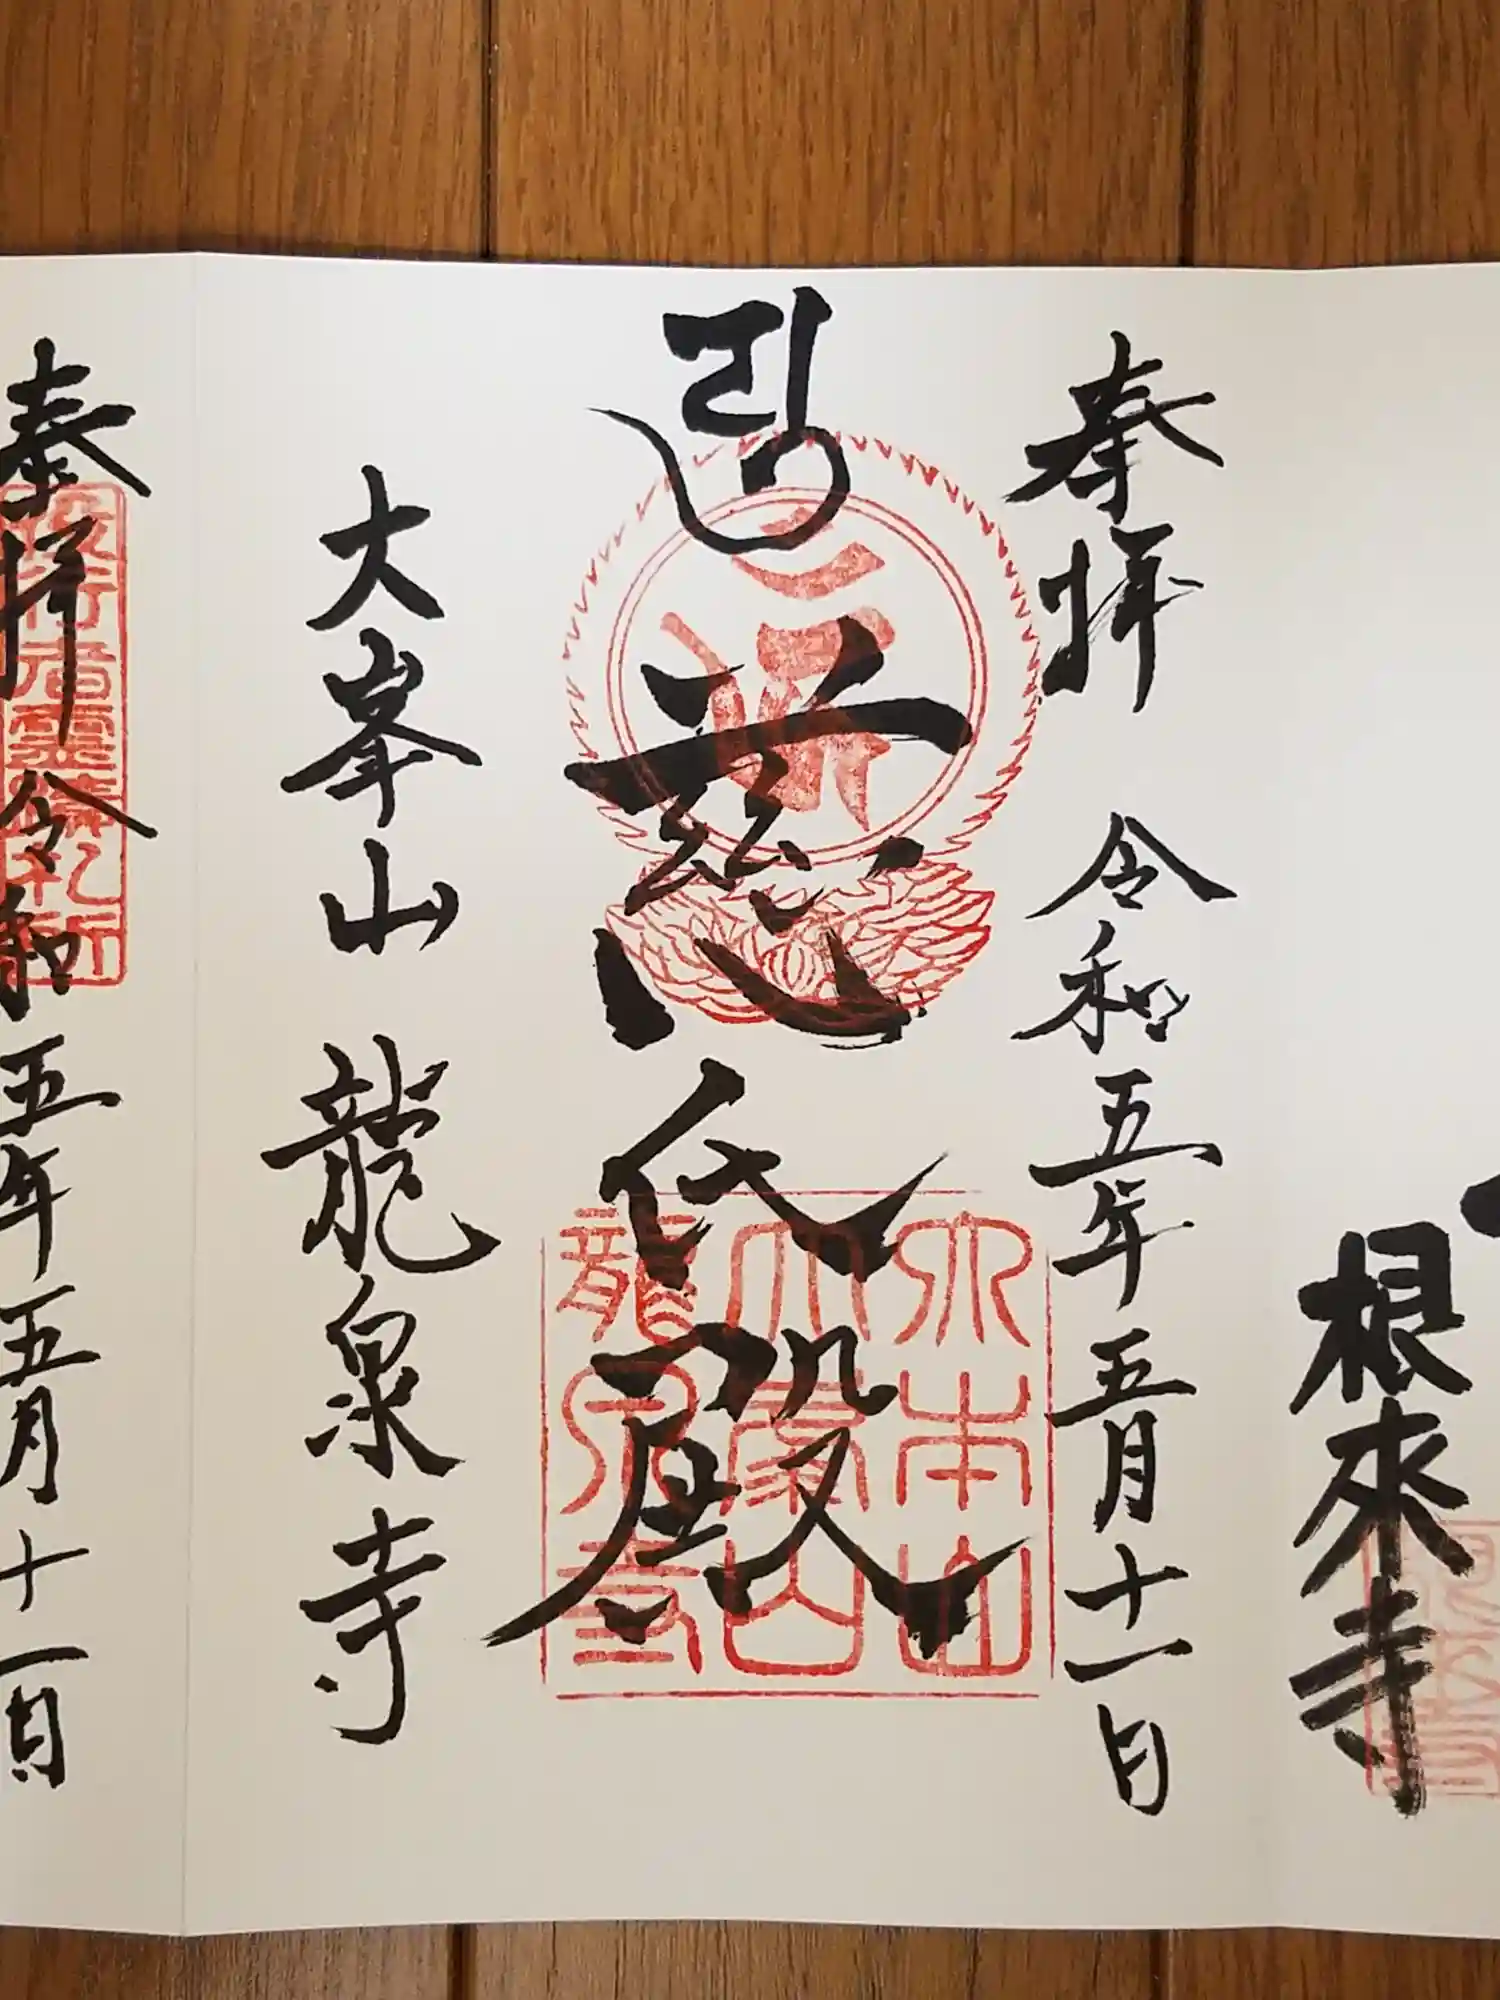 根來寺
奉拝 令和五年五月十一日
慈氏殿
大峯山 龍泉寺
大本山
龍泉寺
奉拝 令和五年五月十一日